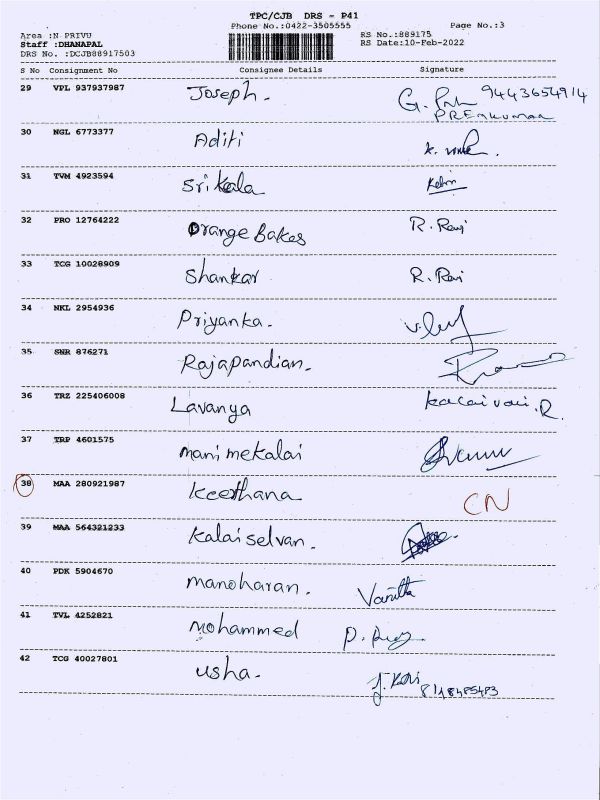 TPC/CJB DRS - P41
Phone No.:0422-3505555
Page No.:3
Area :N PRIVU
Staff :DHANAPAL
DRS No. :DCJB88917503
RS No.:889175
RS Date:10-Feb-2022
S No Consignment No Consignee Details Signature
29 VPL 937937987 Joseph. 9443654914
PREMKUMAR
30 NGL 6773377 Aditi
31 TVM 4923594 Srikala
32 PRO 12764222 Orange Bakes R. Ravi
33 TCG 10028909 Shankar R. Ravi
34 NKL 2954936 Priyanka.
35 SNR 876271 Rajapandian.
36 TRZ 225406008 Lavanya Kalaivani. R.
37 TRP 4601575 manimekalai
38 MAA 280921987 Keerthana CN
39 MAA 564321233 Kalaiselvan.
40 PDK 5904670 manoharan. Vanitha
41 TVL 4252821 Mohammed
42 TCG 40027801 usha.